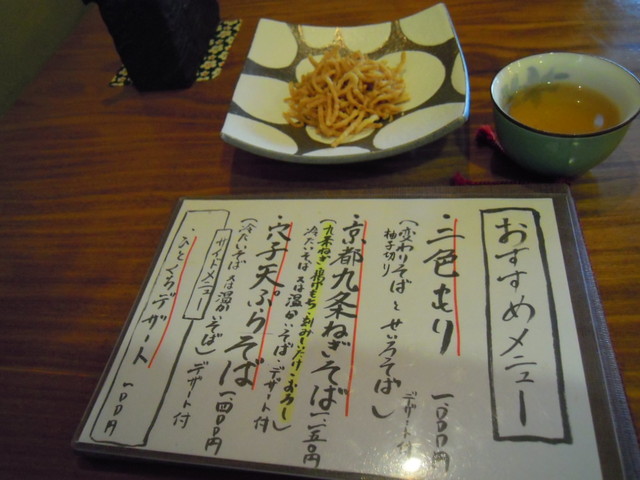 おすすめメニュー
・三色もり 一〇〇〇円
（変わりそば と せいろそば）デザート付
柚子切り
・京都九条ねぎそば 一一五〇円
（九条ねぎ・揚げもち・刻みしいたけ・おろし）
冷たいそば 又は 温かいそば・デザート付
・穴子天ぷらそば 一四〇〇円
（冷たいそば 又は 温かいそば）デザート付
サイドメニュー
・ひとくちデザート 一〇〇円